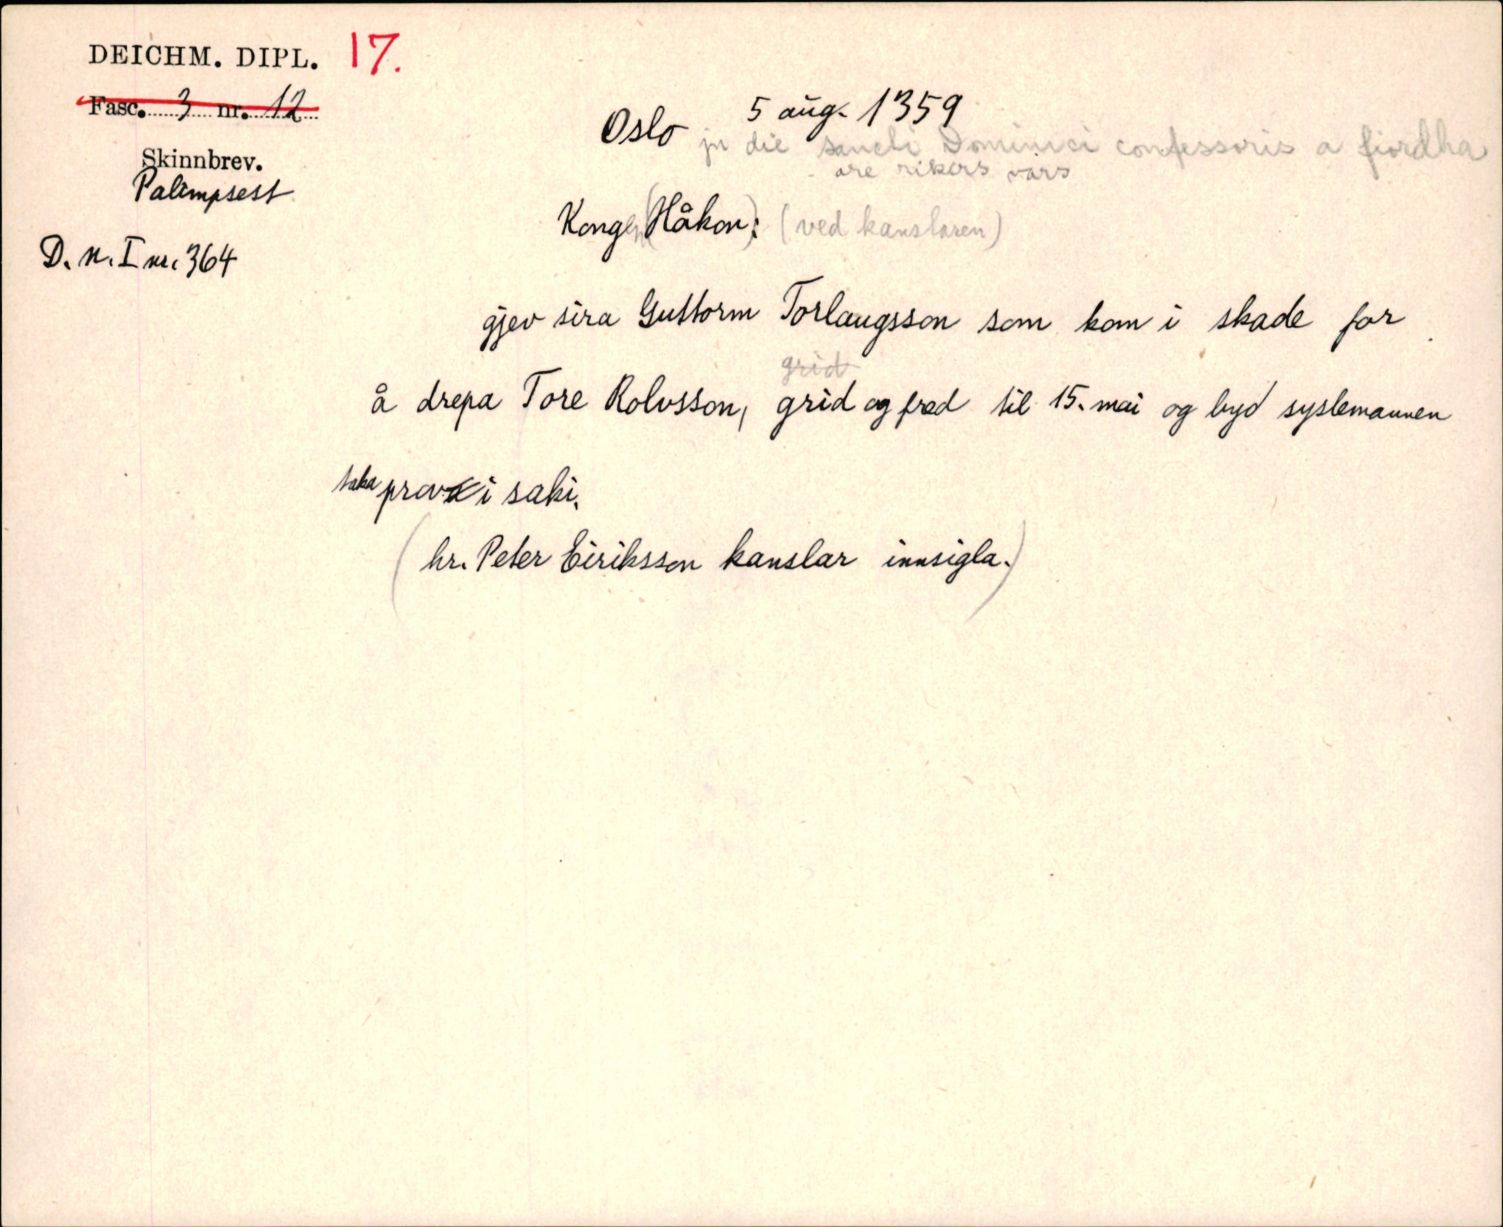 DEICHM. DIPL. 17.
Fasc. 3 nr. 12
5 aug. 1359
Oslo jn die sancti Dominici confessoris a fiordha
are rikers vars
Skinnbrev.
Palimpsest
Kongen (Håkon): (ved kanslaren)
D. N. I nr. 364
gjev sira Guttorm Torlaugsson som kom i skade for
grid
å drepa Tore Rolvsson, grid og fred til 15. mai og byd syslemannen
taka prov i saki.
(hr. Peter Eiriksson kanslar innsigla.)